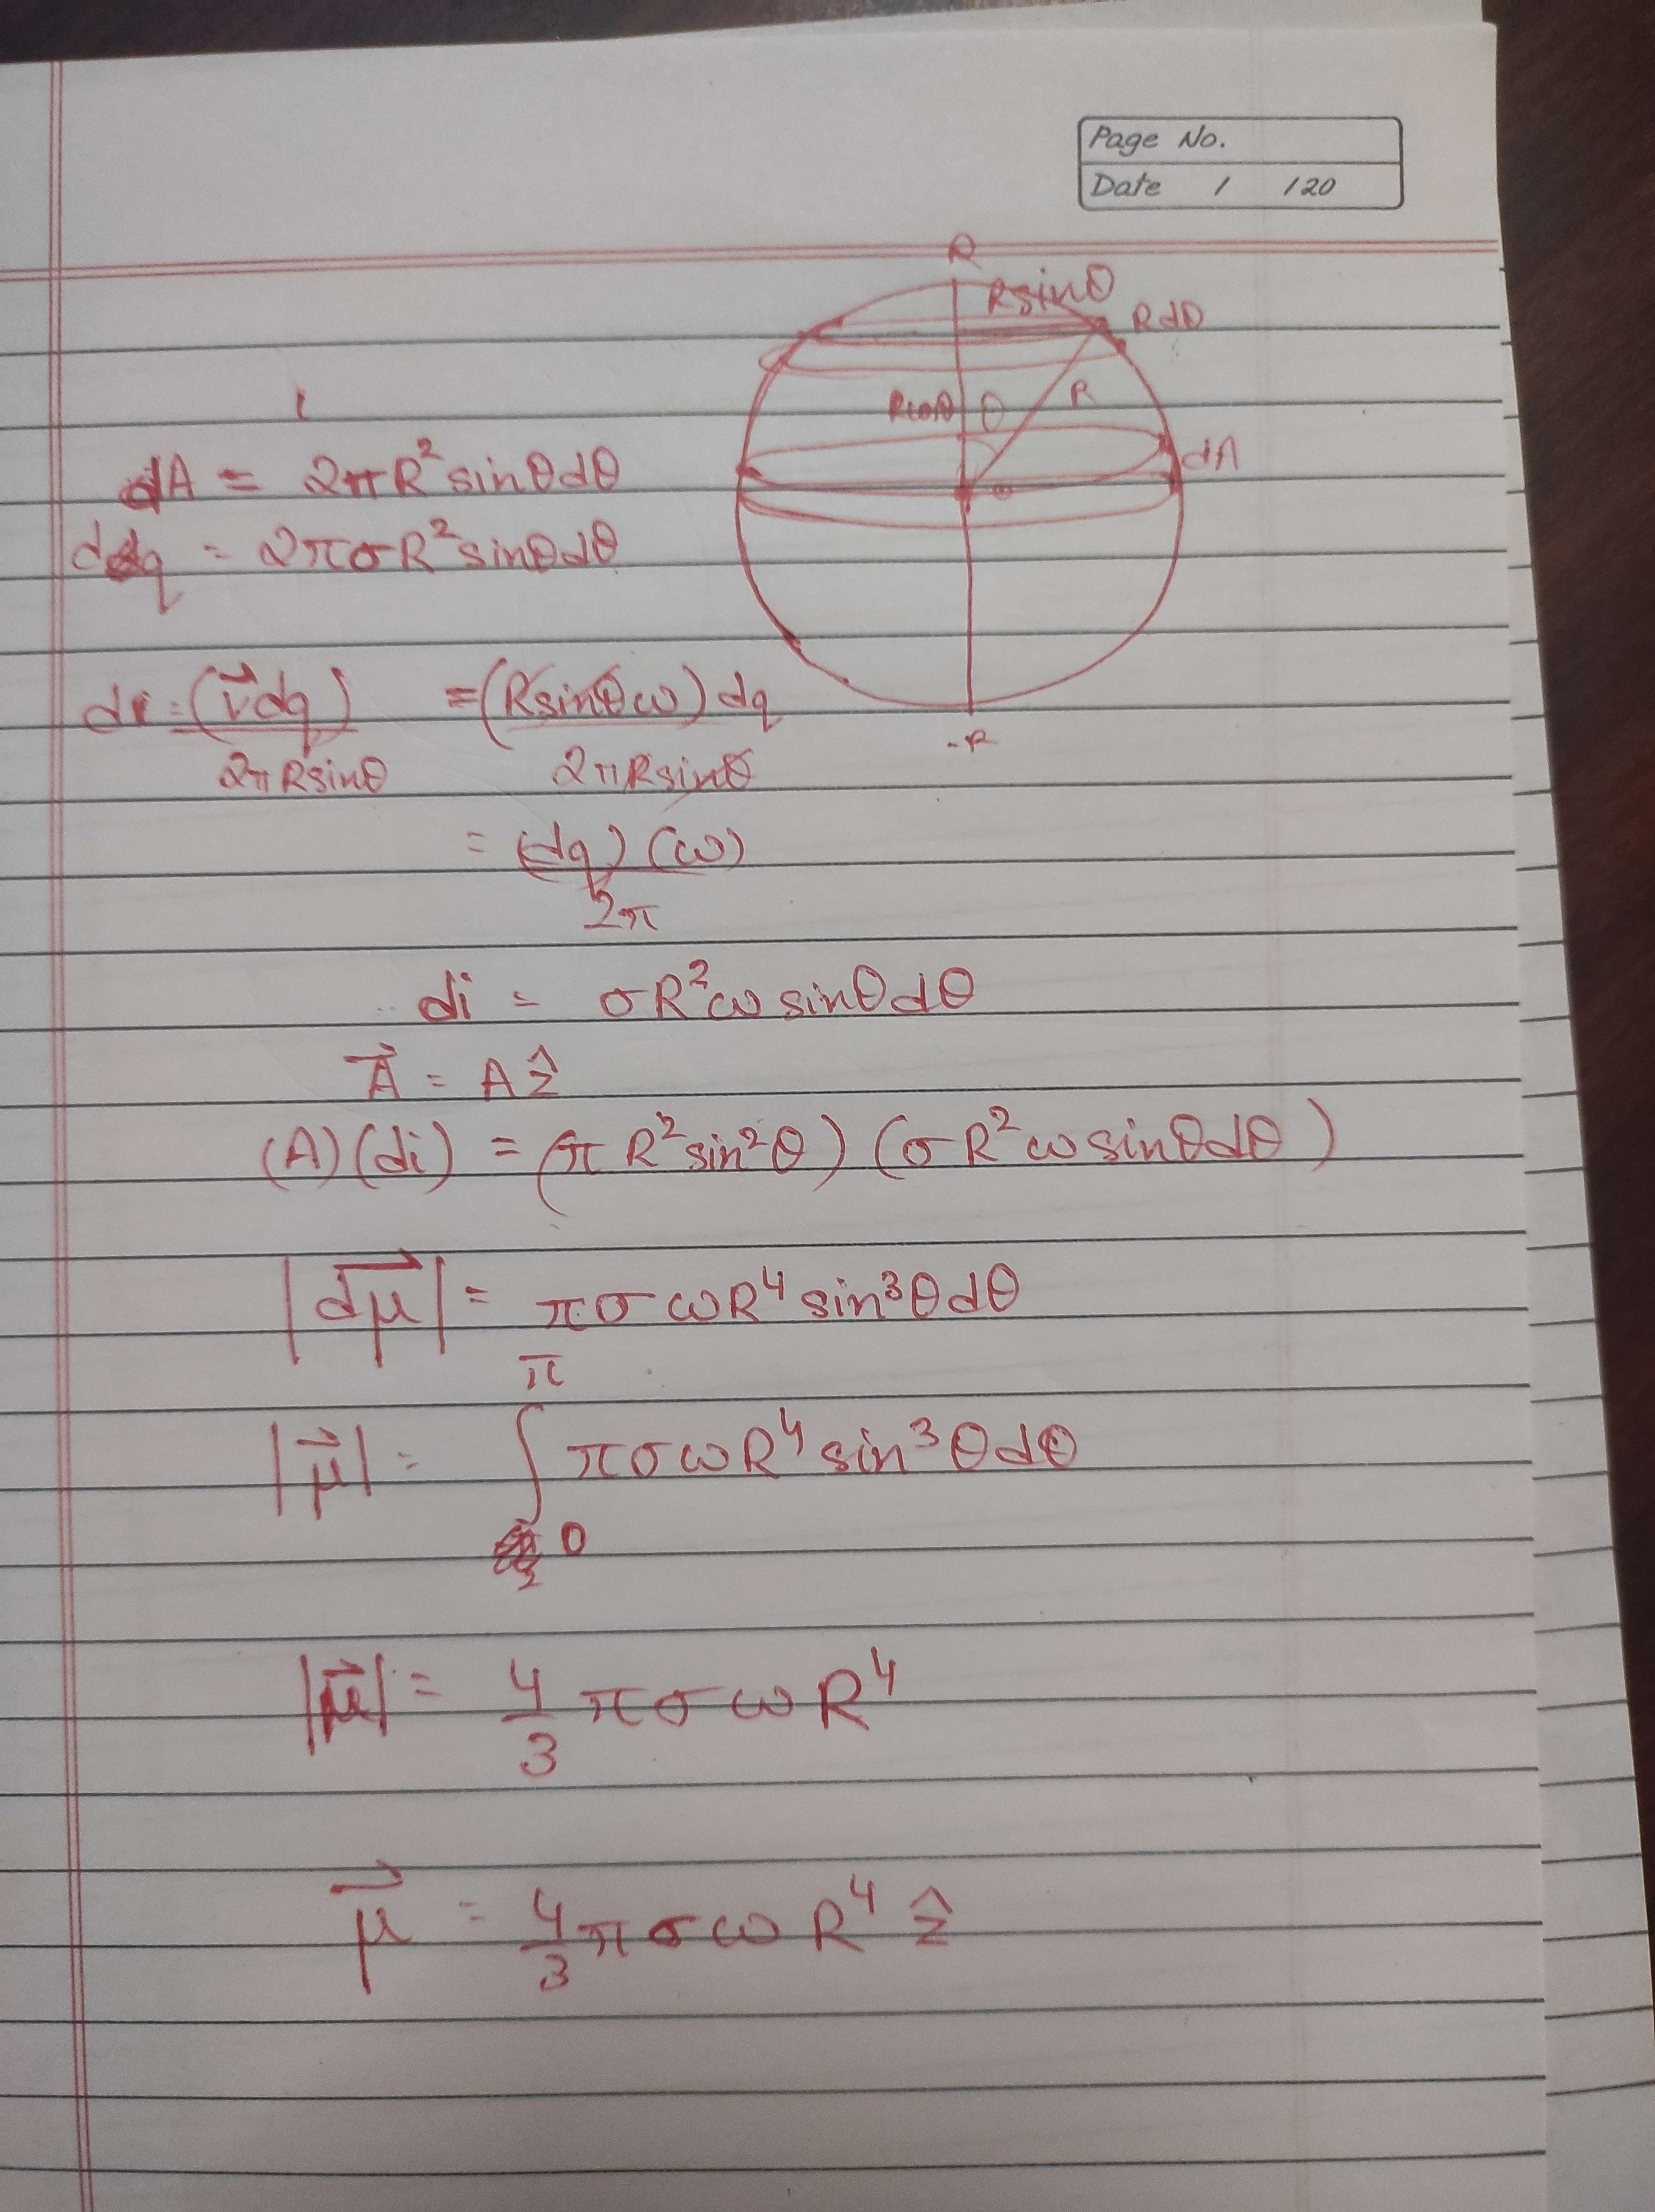 Page No.
Date / /20
R
R sinθ
R dθ
R cosθ θ R
dA
-R
dA = 2πR² sinθ dθ
dq = 2πσR² sinθ dθ
di = (v⃗ dq) / 2πR sinθ = (R sinθ ω) dq / 2πR sinθ
= (dq) (ω) / 2π
di = σR²ω sinθ dθ
A⃗ = A ẑ
(A) (di) = (π R² sin²θ) (σ R² ω sinθ dθ)
|dμ⃗| = πσωR⁴ sin³θ dθ
|μ⃗| = ∫₀^π πσωR⁴ sin³θ dθ
|μ⃗| = 4/3 πσωR⁴
μ⃗ = 4/3 πσωR⁴ ẑ